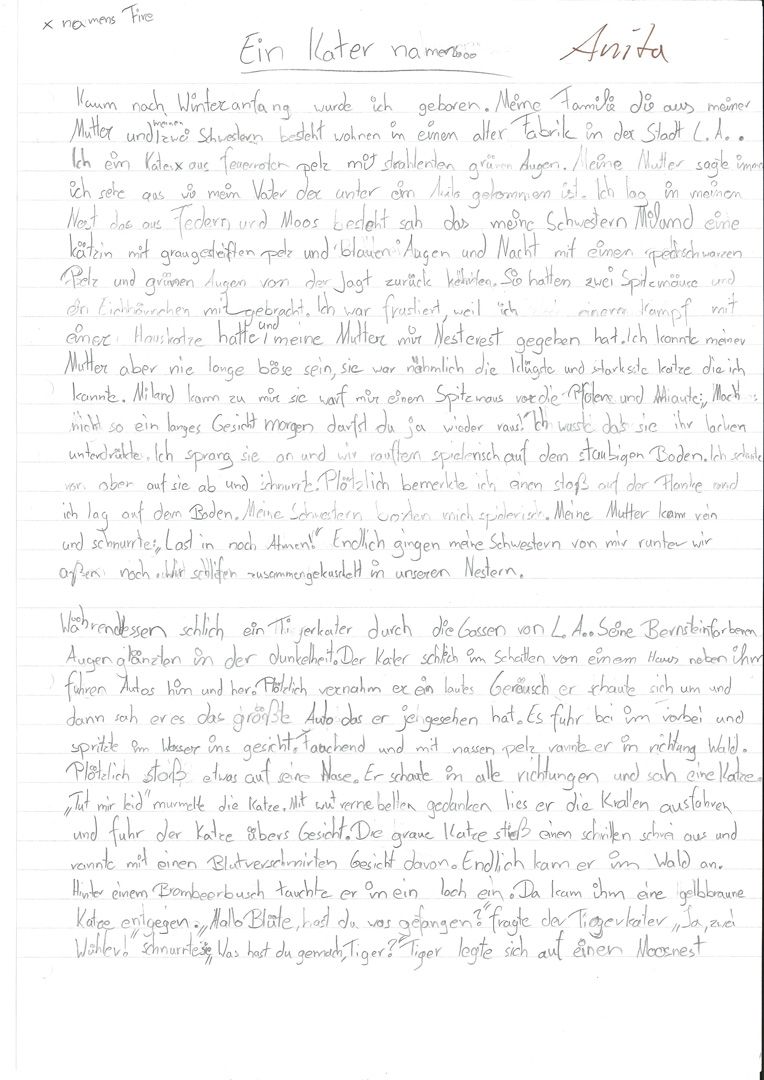 x namens Fire
Ein Kater namens...
Anita
Kaum nach Winteranfang wurde ich geboren. Meine Familie die aus meiner
Mutter und meinen zwei Schwestern besteht wohnen in einen alter Fabrik in der Stadt L.A..
Ich ein Kater x aus feuerroten pelz mit strahlenten grünen Augen. Meine Mutter sagte immer
ich sehe aus wie mein Vater der unter ein Auto gekommen ist. Ich lag in meinem
Nest das aus Federn und Moos besteht sah das meine Schwestern Miland eine
kätzin mit graugesteiften pelz und blauen Augen und Nacht mit einen pechschwarzen
Pelz und grünen Augen von der Jagt zurück kehrten. Sie hatten zwei Spitzmäuse und
ein Eichhörnchen mit gebracht. Ich war frustiert, weil ich einenen Kampf mit
einer Hauskatze hatte und meine Mutter mir Nesterest gegeben hat. Ich konnte meiner
Mutter aber nie lange böse sein, sie war nähmlich die klügste und starkste katze die ich
kannte. Miland kam zu mir sie warf mir einen Spitzmaus vor die Pfoten und Miaute: „Mach
nicht so ein langes Gesicht morgen darfst du ja wieder raus!" Ich wusste das sie ihr lachen
unterdrükte. Ich sprang sie an und wir rauften spielerisch auf dem staubigen Boden. Ich
von aber auf sie ab und schnurrte. Plötzlich bemerkte ich einen stoß auf der Flanke und
ich lag auf dem Boden. Meine Schwestern boxten mich spielerisch. Meine Mutter kam rein
und schnurrte: „Last in noch Atmen!" Endlich gingen meine Schwestern von mir runter wir
aßen noch. Wir schlifen zusammengekuschelt in unseren Nestern.
Währendessen schlich ein Tigerkater durch die Gassen von L.A.. Seine Bernsteinfarbenen
Augen glänzten in der dunkelheit. Der Kater schlich im Schatten von einem Haus neben ihm
fuhren Autos hin und her. Plötzlich vernahm er ein lautes Geräusch er schaute sich um und
dann sah er es das größte Auto das er je gesehen hat. Es fuhr bei im vorbei und
spritzte im Wasser ins gesicht. Fauchend und mit nassen pelz rannte er in richtung Wald.
Plötzlich stoiß etwas auf seine Nase. Er schaute in alle richtungen und sah eine Katze.
„Tut mir leid" murmelte die Katze. Mit wut vernebelten gedanken lies er die Krallen ausfahren
und fuhr der Katze übers Gesicht. Die graue Katze stieß einen schrillen schrei aus und
rannte mit einen Blutverschmirten Gesicht davon. Endlich kam er im Wald an.
Hinter einem Brombeerbusch tauchte er in ein loch ein. Da kam ihm eine gelbbraune
Katze entgegen. „Hallo Blüte, hast du was gefangen?" fragte der Tiegerkater „Ja, zwei
Wühler!" schnurrte sie „Was hast du gemach, Tiger?" Tiger legte sich auf einen Moosnest